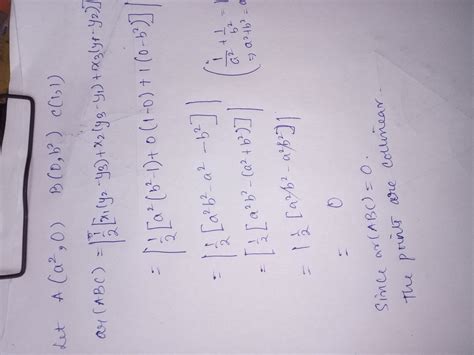 Let A(a², 0) B(0, b²) C(1, 1)
ar(ABC) = |1/2 [x₁(y₂-y₃) + x₂(y₃-y₁) + x₃(y₁-y₂)]
= |1/2 [a²(b²-1) + 0(1-0) + 1(0-b²)]|
= |1/2 [a²b² - a² - b²]|
= [1/2 [a²b² - (a²+b²)]| (1/a² + 1/b² = 1
⇒ a²+b² = a
= |1/2 [a²b² - a²b²]|
= 0
Since ar(ABC) = 0.
the point are collinear.